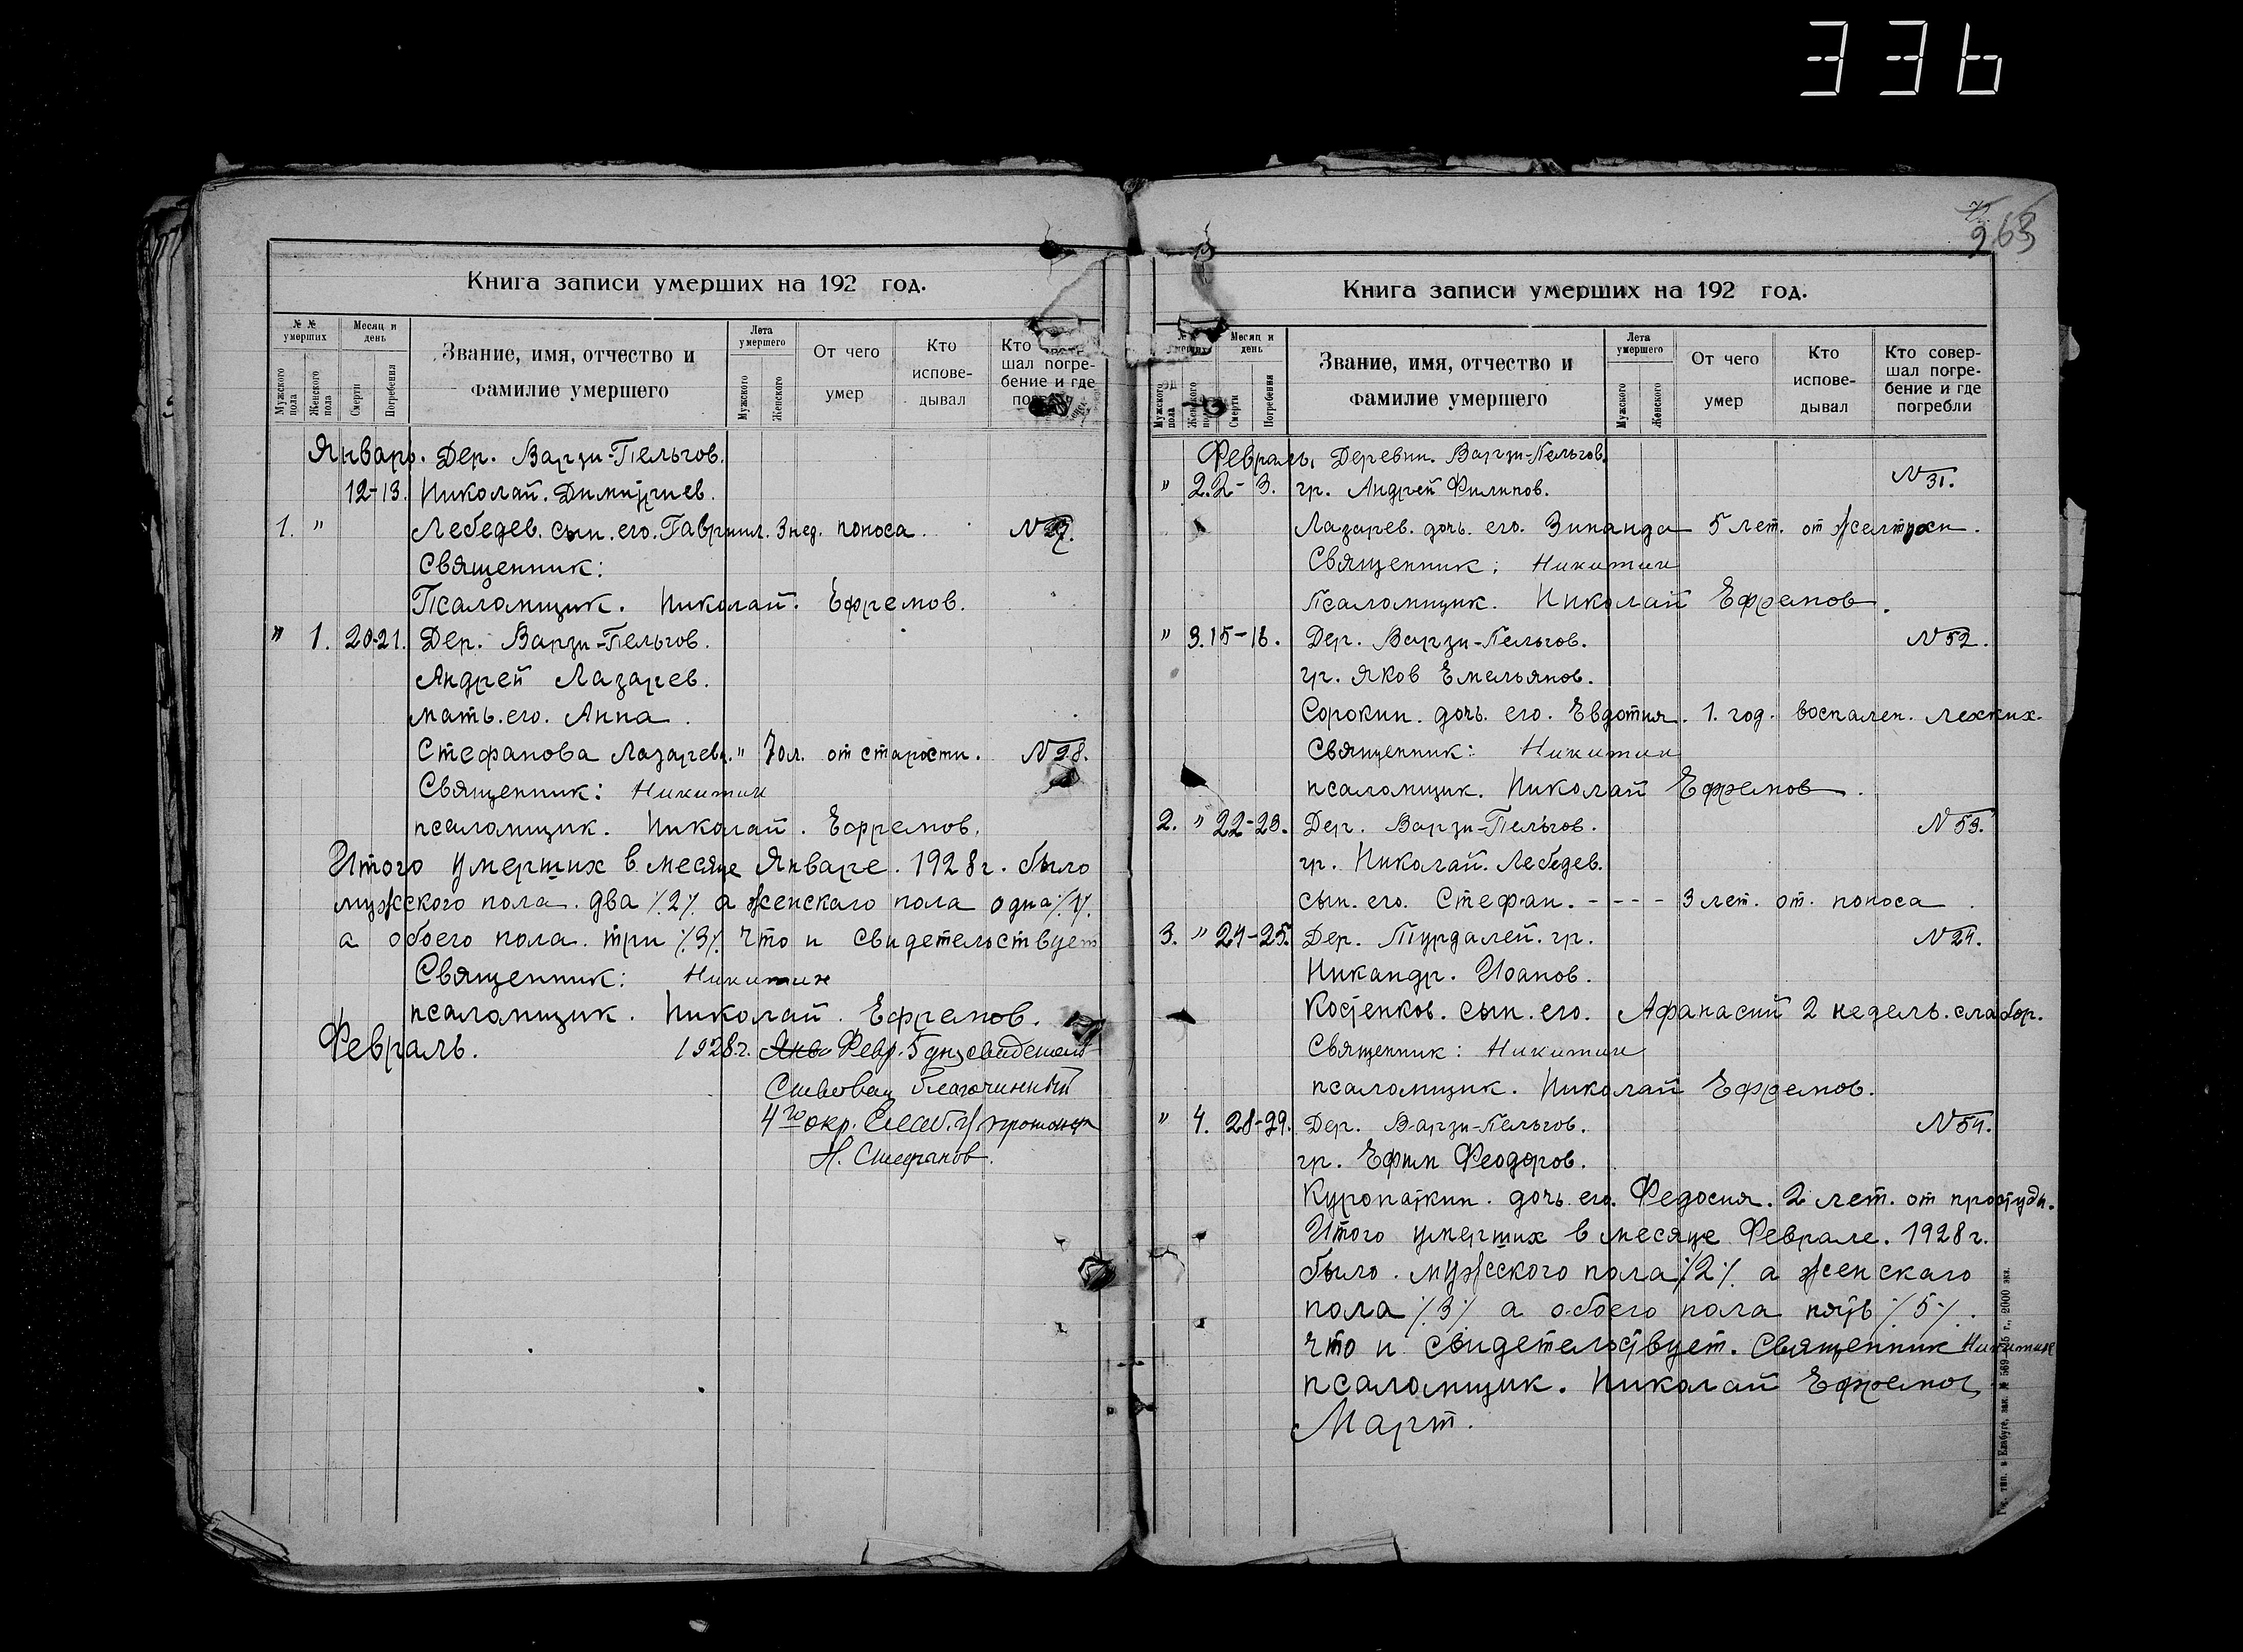 336
Книга записи умерших на 192 год.
№ № умерших
Месяц и день
Мужского пола
Женского пола
Смерти
Погребения
Звание, имя, отчество и
фамилие умершего
Лета умершего
Мужского
Женского
От чего
умер
Кто
испове-
дывал
Кто
шал погре-
бение и где
Январь. Дер. Варзи-Пельгов.
12-13. Николай. Димитриев.
1. " Лебедев. сын. его. Гавриил. 3 нед. поноса.
Священник:
Псаломщик. Николай. Ефремов.
" 1. 20-21. Дер. Варзи-Пельгов.
Андрей Лазарев.
мать. его. Анна.
Стефанова Лазарева. " 70 л. от старости. N 28.
Священник: Никитин
псаломщик. Николай. Ефремов.
Итого умерших в месяце Январе. 1928 г. было
мужского пола. два ٪2٪ а женскаго пола одна ٪1٪.
а обоего пола. три ٪3٪ что и свидетельствует
Священник: Никитин
псаломщик. Николай. Ефремов.
Февраль. 1928 г. Янв Февр. 5 дня свидетель
ствовал Благочинный
4го окр.
Н. Стефанов.
963
Книга записи умерших на 192 год.
Месяц и день
Мужского пола
Женского
Смерти
Погребения
Звание, имя, отчество и
фамилие умершего
Лета умершего
Мужского
Женского
От чего
умер
Кто
испове-
дывал
Кто совер-
шал погре-
бение и где
погребли
Февраль. Деревни. Варзи-Пельгов.
" 2. 2- 3. гр. Андрей Филипов. N 31.
Лазарев. дочь. его. Зинаида 5 лет. от желтухи.
Священник: Никитин
псаломщик. Николай Ефремов.
" 3. 15-16. Дер. Варзи-Пельгов. N 52.
гр. Яков Емельянов.
Сорокин. дочь. его. Евдотия. 1. год. воспален. лехких.
Священник: Никитин
псаломщик. Николай Ефремов.
2. " 22-23. Дер. Варзи-Пельгов. N 53.
гр. Николай. Лебедев.
сын. его. Стефан. - - - - 3 лет. от. поноса.
3. " 24-25. Дер. Турдалей. гр. N 24.
Никандр. Иоанов.
Костенков. сын. его. Афанасий 2 недель. слабор.
Священник: Никитин
псаломщик. Николай Ефремов.
" 4. 28-29. Дер. Варзи-Пельгов. N 54.
гр. Ефим Феодоров.
Куропаткин. дочь его. Федосия. 2 лет. от простуды.
Итого умерших в месяце Феврале. 1928 г.
было. мужского пола ٪2٪ а женскаго
пола ٪3٪ а обоего пола пять ٪5٪.
что и свидетельствует. Священник Никитин
псаломщик. Николай Ефремов
Март.
Гос. тип. в Елабуге, зак. № 569—25 г., 2000 экз.